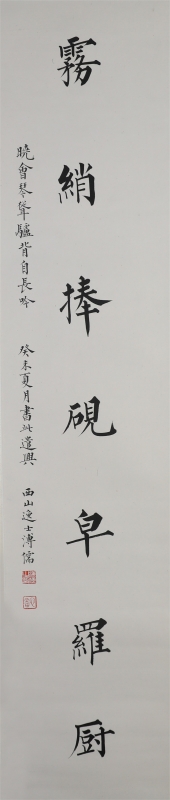 霧綃捧硯皁羅厨
曉會琴聲驢背自長吟 癸未夏月書此遣興 西山逸士溥儒